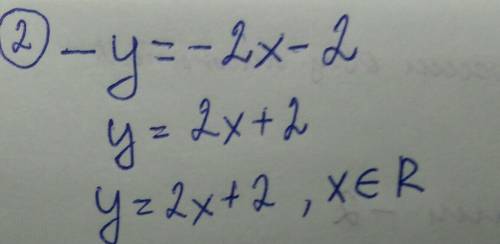 ② -y = -2x - 2
y = 2x + 2
y = 2x + 2 , x ∈ R